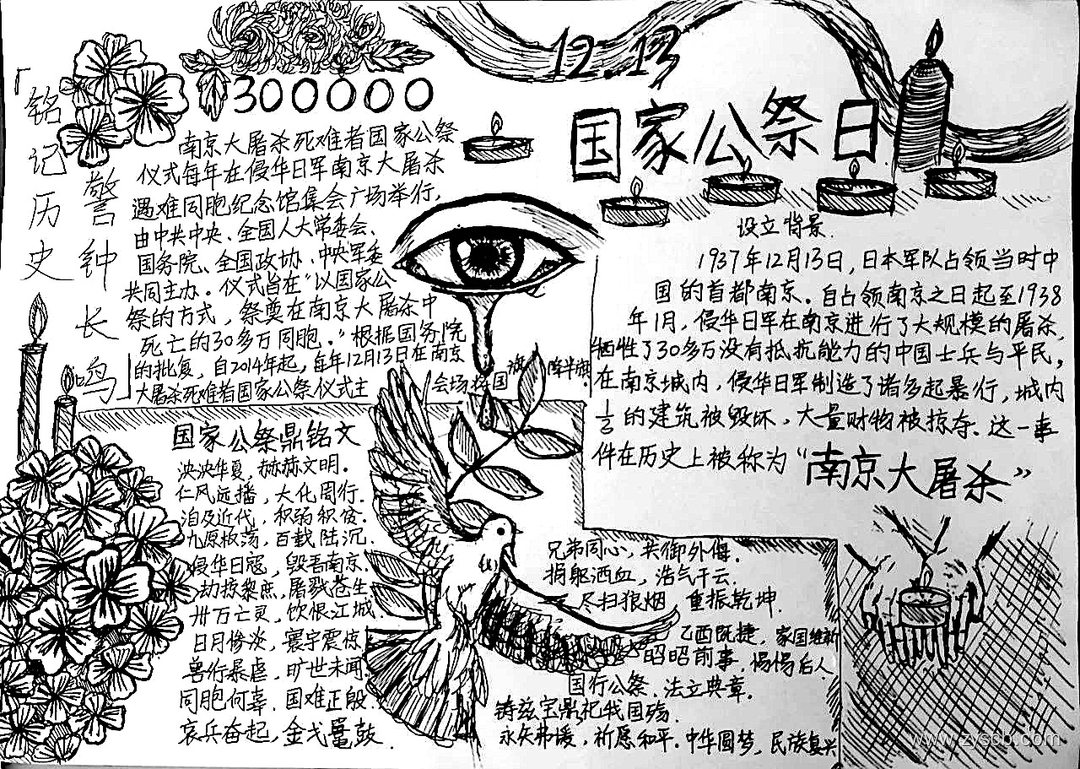 「铭记历史
警钟长鸣」
300000
南京大屠杀死难者国家公祭
仪式每年在侵华日军南京大屠杀
遇难同胞纪念馆集会广场举行,
由中共中央、全国人大常委会、
国务院、全国政协、中央军委
共同主办。仪式旨在"以国家公
祭的方式,祭奠在南京大屠杀中
死亡的30多万同胞。"根据国务院
的批复,自2014年起,每年12月13日在南京
大屠杀死难者国家公祭仪式主
会场 国旗 降半旗
12.13
国家公祭日
设立背景
1937年12月13日,日本军队占领当时中
国的首都南京。自占领南京之日起至1938
年1月,侵华日军在南京进行了大规模的屠杀
牺牲了30多万没有抵抗能力的中国士兵与平民,
在南京城内,侵华日军制造了诸多起暴行,城内
的建筑被毁坏,大量财物被掠夺。这一事
件在历史上被称为"南京大屠杀"
国家公祭鼎铭文
泱泱华夏,赫赫文明。
仁风远播,大化周行。
洎及近代,积弱积贫。
九原板荡,百载陆沉。
侵华日寇,毁吾南京。
劫掠黎庶,屠戮苍生
卅万亡灵,饮恨江城
日月惨淡,寰宇震惊
兽行暴虐,旷世未闻
同胞何辜,国难正殷
哀兵奋起,金戈鼍鼓.
兄弟同心,共御外侮.
捐躯洒血,浩气干云.
尽扫狼烟,重振乾坤.
乙酉既捷,家国维新
昭昭前事,惕惕后人
国行公祭.法立典章.
铸兹宝鼎祀我国殇.
永矢弗谖,祈愿和平.中华圆梦,民族复兴
www.zyscb.com